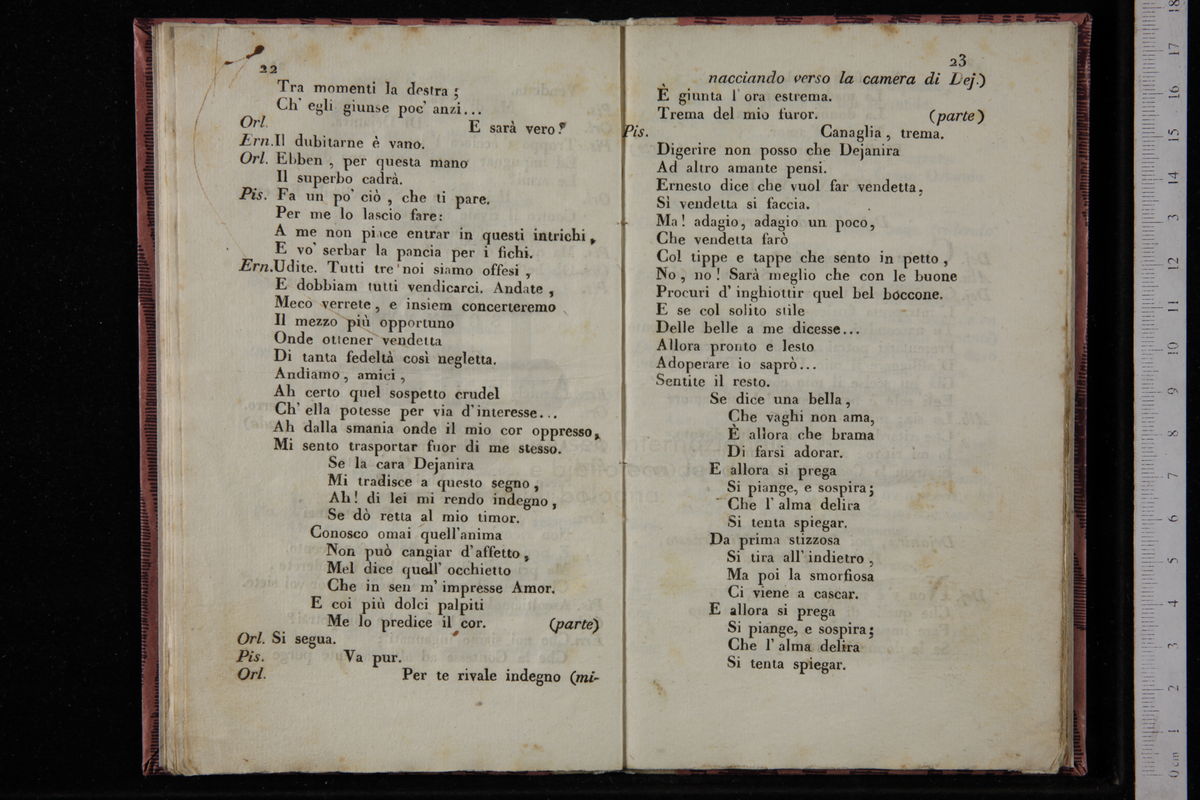 22
Tra momenti la destra ;
Ch' egli giunse poc' anzi...
Orl. E sarà vero?
Ern. Il dubitarne è vano.
Orl. Ebben , per questa mano
Il superbo cadrà.
Pis. Fa un po' ciò , che ti pare.
Per me lo lascio fare:
A me non piace entrar in questi intrichi,
E vo' serbar la pancia per i fichi.
Ern. Udite. Tutti tre noi siamo offesi ,
E dobbiam tutti vendicarci. Andate ,
Meco verrete , e insiem concerteremo
Il mezzo più opportuno
Onde ottener vendetta
Di tanta fedeltà così negletta.
Andiamo , amici ,
Ah certo quel sospetto crudel
Ch' ella potesse per via d'interesse...
Ah dalla smania onde il mio cor oppresso,
Mi sento trasportar fuor di me stesso.
Se la cara Dejanira
Mi tradisce a questo segno ,
Ah! di lei mi rendo indegno ,
Se dò retta al mio timor.
Conosco omai quell'anima
Non può cangiar d'affetto ,
Mel dice quell' occhietto
Che in sen m' impresse Amor.
E coi più dolci palpiti
Me lo predice il cor. (parte)
Orl. Si segua.
Pis. Va pur.
Orl. Per te rivale indegno (mi-
23
nacciando verso la camera di Dej.)
È giunta l' ora estrema.
Trema del mio furor. (parte)
Pis. Canaglia , trema.
Digerire non posso che Dejanira
Ad altro amante pensi.
Ernesto dice che vuol far vendetta,
Sì vendetta si faccia.
Ma! adagio, adagio un poco,
Che vendetta farò
Col tippe e tappe che sento in petto ,
No , no ! Sarà meglio che con le buone
Procuri d' inghiottir quel bel boccone.
E se col solito stile
Delle belle a me dicesse...
Allora pronto e lesto
Adoperare io saprò...
Sentite il resto.
Se dice una bella ,
Che vaghi non ama,
È allora che brama
Di farsi adorar.
E allora si prega
Si piange, e sospira;
Che l' alma delira
Si tenta spiegar.
Da prima stizzosa
Si tira all' indietro ,
Ma poi la smorfiosa
Ci viene a cascar.
E allora si prega
Si piange, e sospira;
Che l' alma delira
Si tenta spiegar.
0 cm 1 2 3 4 5 6 7 8 9 10 11 12 13 14 15 16 17 18